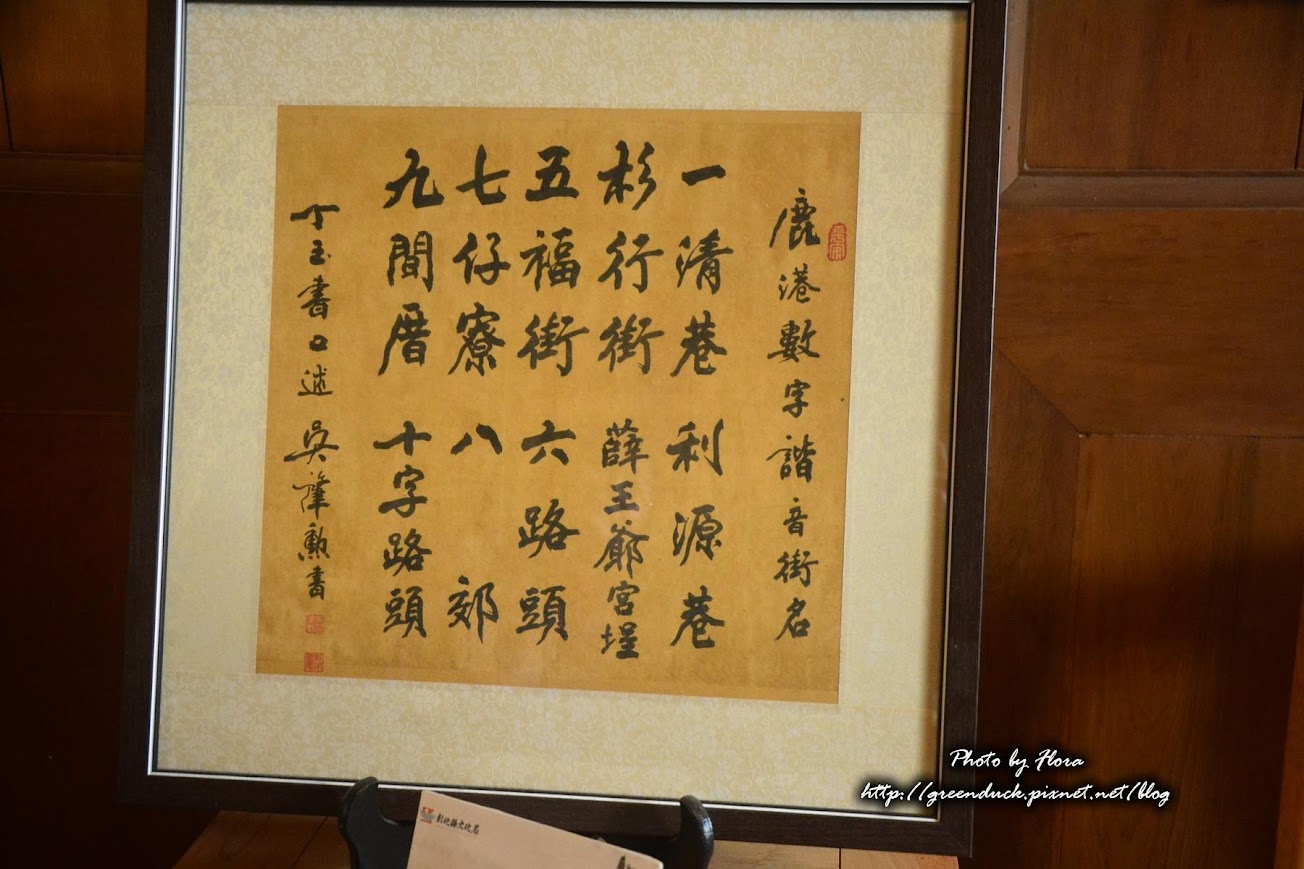 鹿港數字諧音街名
一清巷 利源巷
杉行街 薛王爺宮埕
五福街 六路頭
七仔寮 八郊
九間厝 十字路頭
丁玉書口述 吳肇勲書
彰化縣文化局
Photo by Flora
http://greenduck.pixnet.net/blog